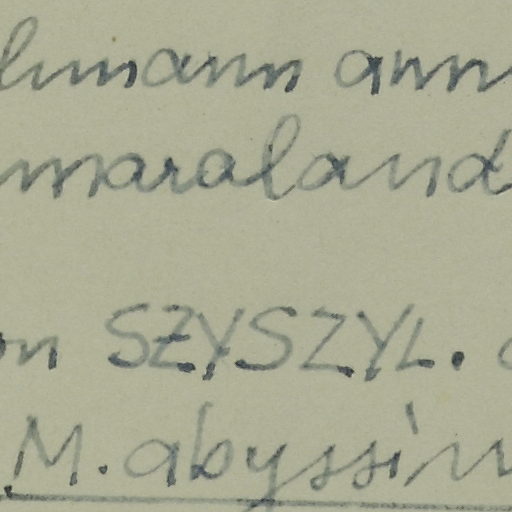 lmann ann
maraland
on SZYSZYL.
M. abyssin